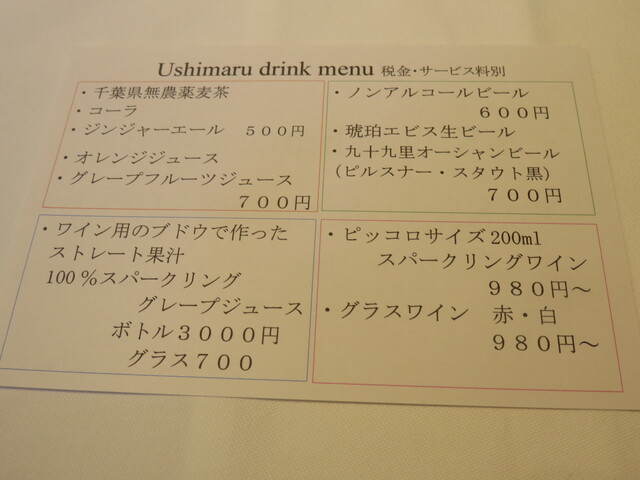 Ushimaru drink menu 税金・サービス料別
・千葉県無農薬麦茶
・コーラ
・ジンジャーエール　５００円
・オレンジジュース
・グレープフルーツジュース
７００円
・ノンアルコールビール
６００円
・琥珀エビス生ビール
・九十九里オーシャンビール
（ピルスナー・スタウト黒）
７００円
・ワイン用のブドウで作った
ストレート果汁
100％スパークリング
グレープジュース
ボトル３０００円
グラス７００
・ピッコロサイズ 200ml
スパークリングワイン
９８０円～
・グラスワイン　赤・白
９８０円～